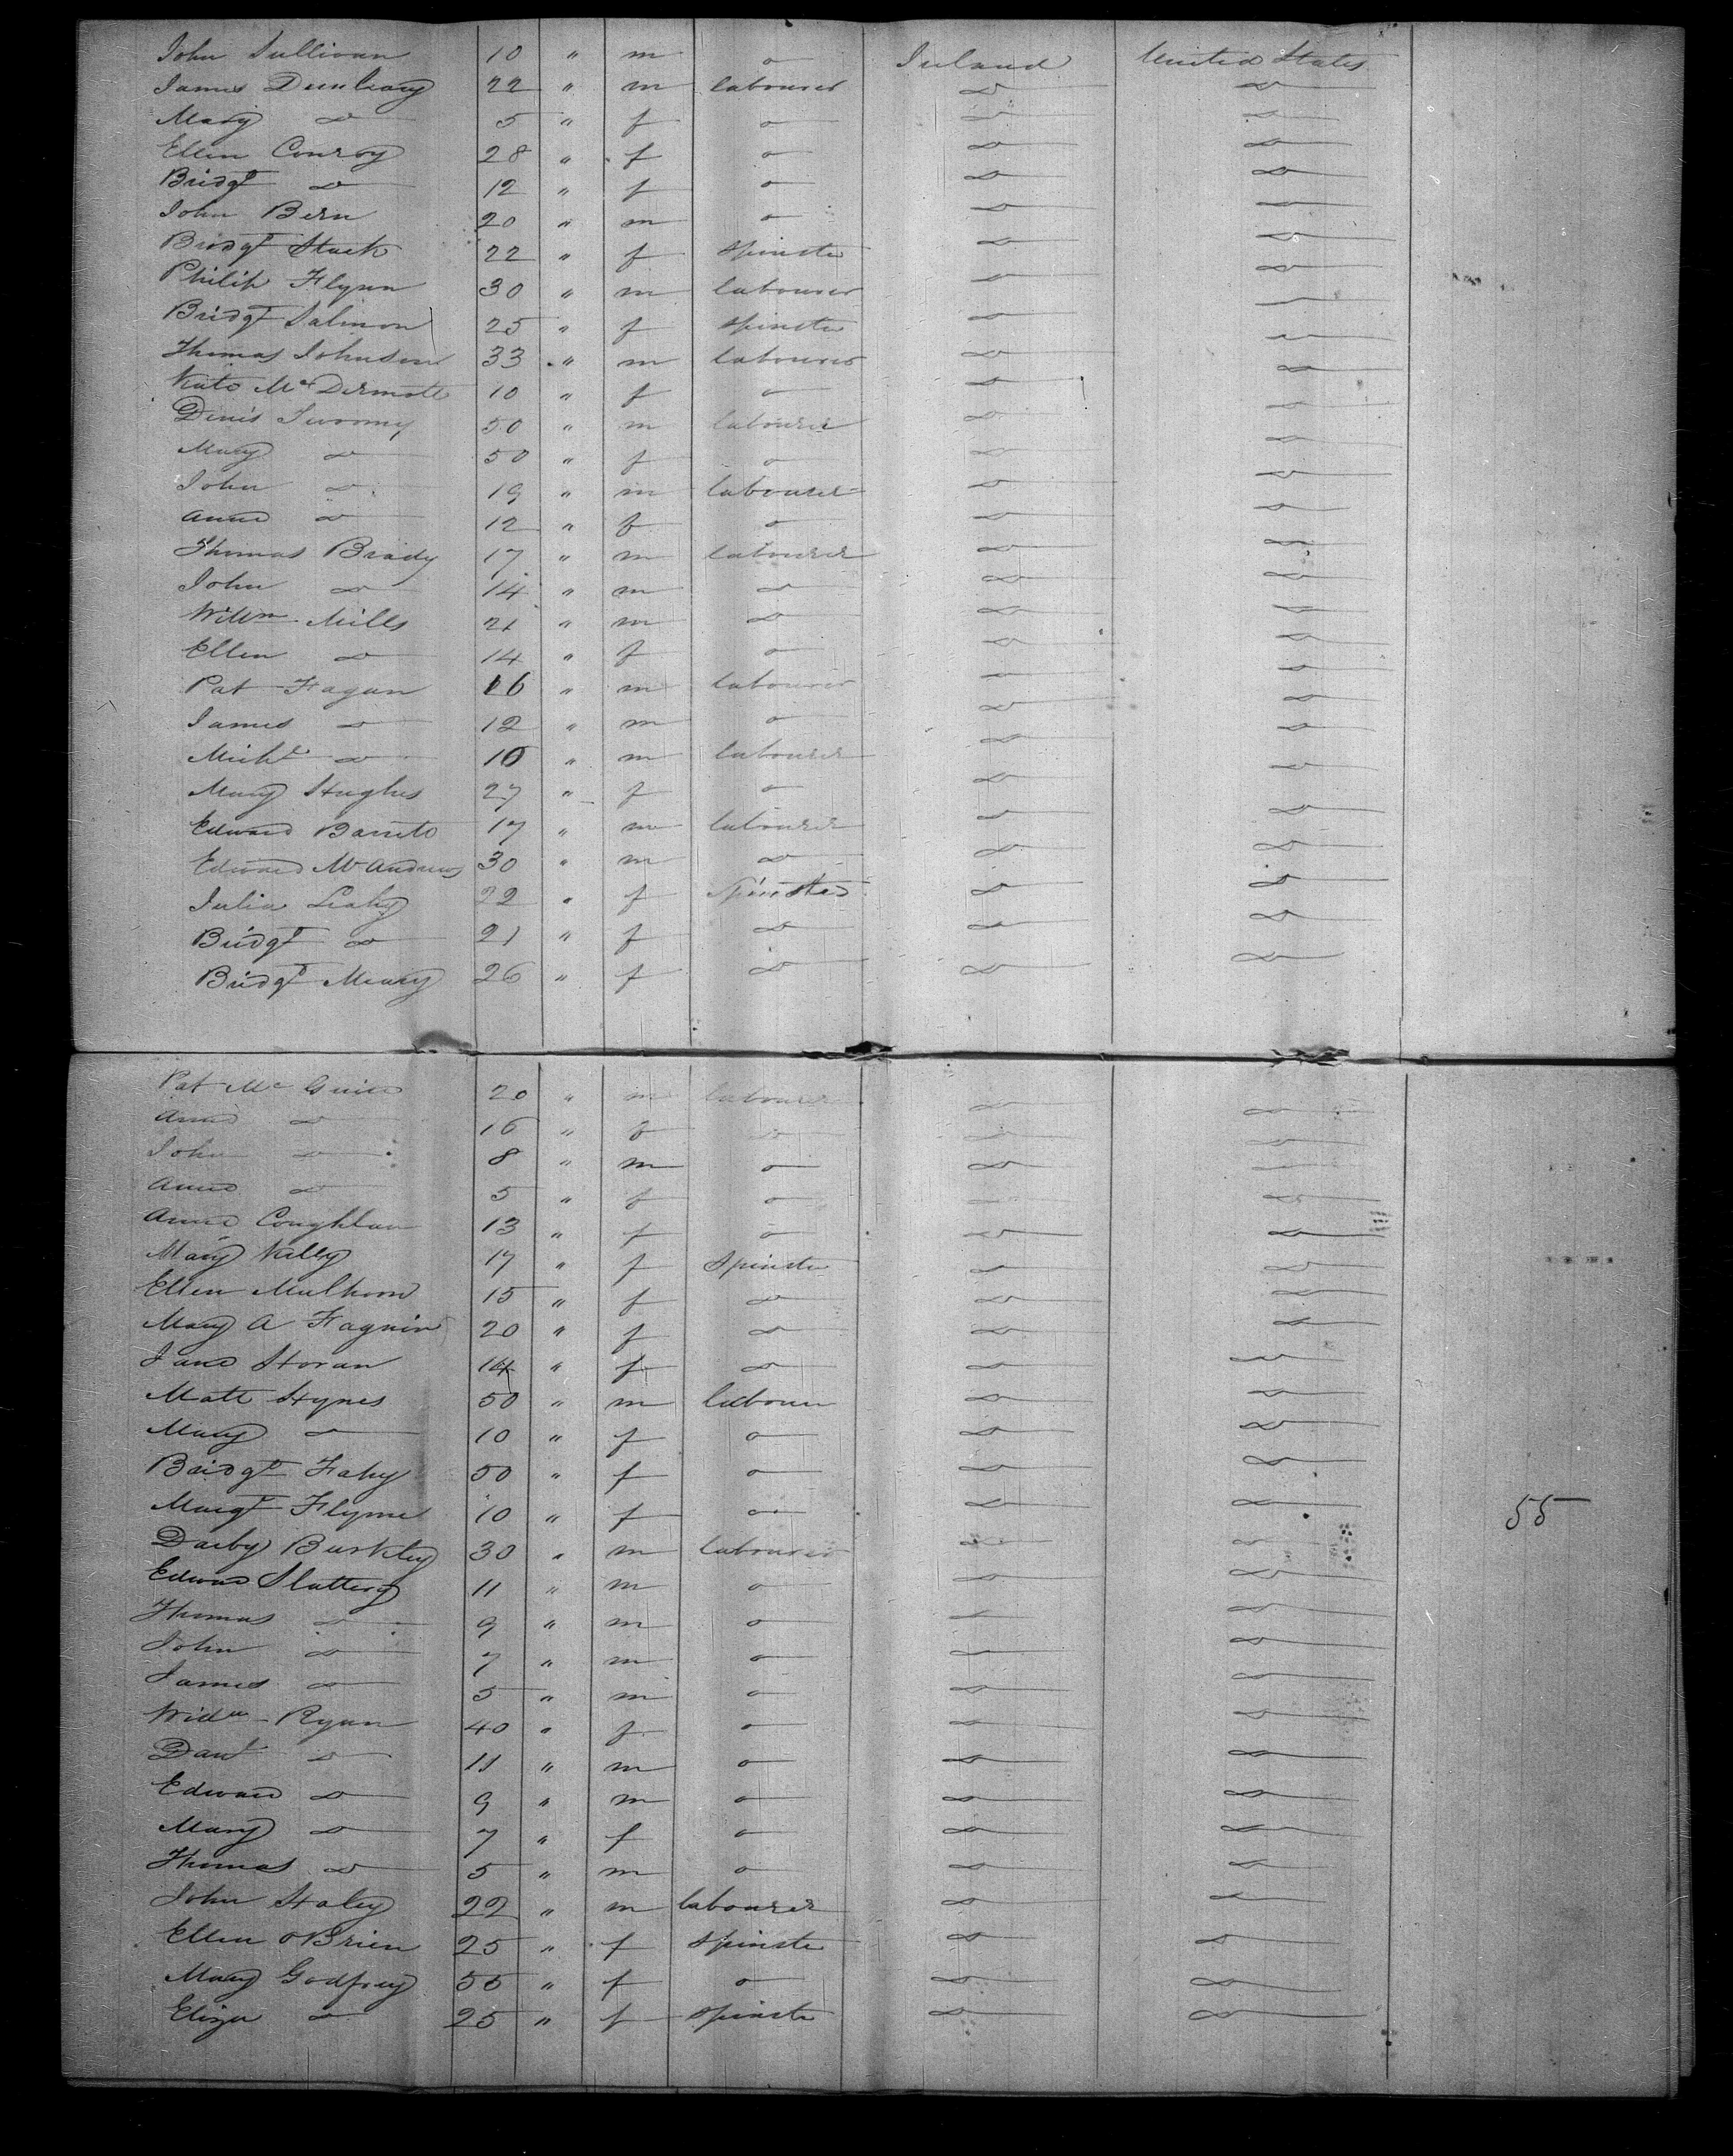 John Sullivan 10 " m o Ireland United States
James Dunleavy 22 " m labourer do do
Mary do 5 " f o do do
Ellen Conroy 28 " f o do do
Bridgt do 12 " f o do do
John Bern 20 " m o do do
Bridgt Stack 22 " f Spinster do do
Philip Flynn 30 " m labourer do do
Bridgt Salmon 25 " f Spinster do do
Thomas Johnson 33 " m labourer do do
Kate McDermott 10 " f o do do
Denis Twomy 50 " m labourer do do
Mary do 50 " f o do do
John do 19 " m labourer do do
Anne do 12 " f o do do
Thomas Brady 17 " m labourer do do
John do 14 " m do do do
Willm Mills 21 " m do do do
Ellen do 14 " f o do do
Pat Fagan 16 " m labourer do do
James do 12 " m o do do
Michl do 10 " m labourer do do
Mary Hughes 27 " f o do do
Edward Barrett 17 " m labourer do do
Edward McAndrews 30 " m do do do
Julia Leahy 22 " f Spinster do do
Bridgt do 21 " f do do do
Bridgt Meary 26 " f do do do
Pat McGuire 20 " m labourer do do
Anne do 16 " f do do do
John do 8 " m o do do
Anne do 5 " f o do do
Anne Coughlan 13 " f o do do
Mary Kelly 17 " f Spinster do do
Ellen Mulhern 15 " f do do do
Mary A Fagnin 20 " f do do do
Jane Horan 14 " f do do do
Matt Hynes 50 " m labourer do do
Mary do 10 " f o do do
Bridgt Fahy 50 " f o do do
Margt Flynne 10 " f o do do 55
Darby Burkley 30 " m labourer do do
Edward Slattery 11 " m o do do
Thomas do 9 " m o do do
John do 7 " m o do do
James do 5 " m o do do
Widw Ryan 40 " f o do do
Danl do 11 " m o do do
Edward do 9 " m o do do
Mary do 7 " f o do do
Thomas do 5 " m o do do
John Haley 22 " m labourer do do
Ellen OBrien 25 " f Spinster do do
Mary Godfrey 55 " f o do do
Eliza do 25 " f Spinster do do